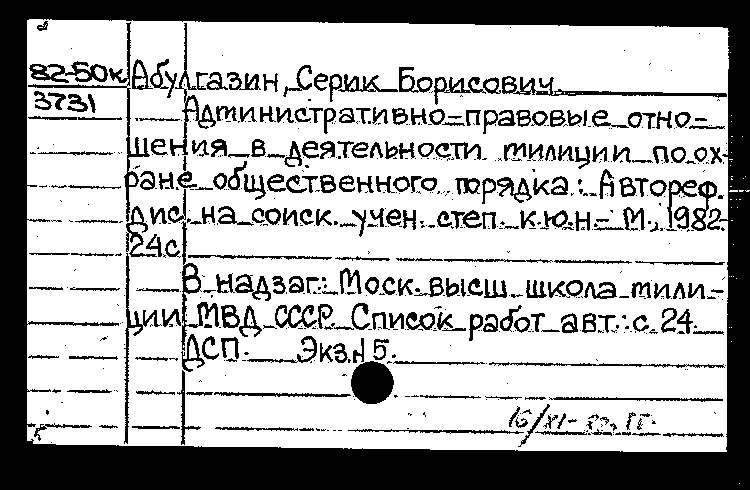 82-50к Абулгазин, Серик Борисович.
3731 Административно-правовые отно-
шения в деятельности милиции по ох-
ране общественного порядка: Автореф.
дис. на соиск. учен. степ. к.ю.н.- М., 1982.
24с.
В надзаг.: Моск. высш. школа мили-
ции МВД СССР. Список работ авт.: с.24.
ДСП. Экз.N 5.
16/XI-